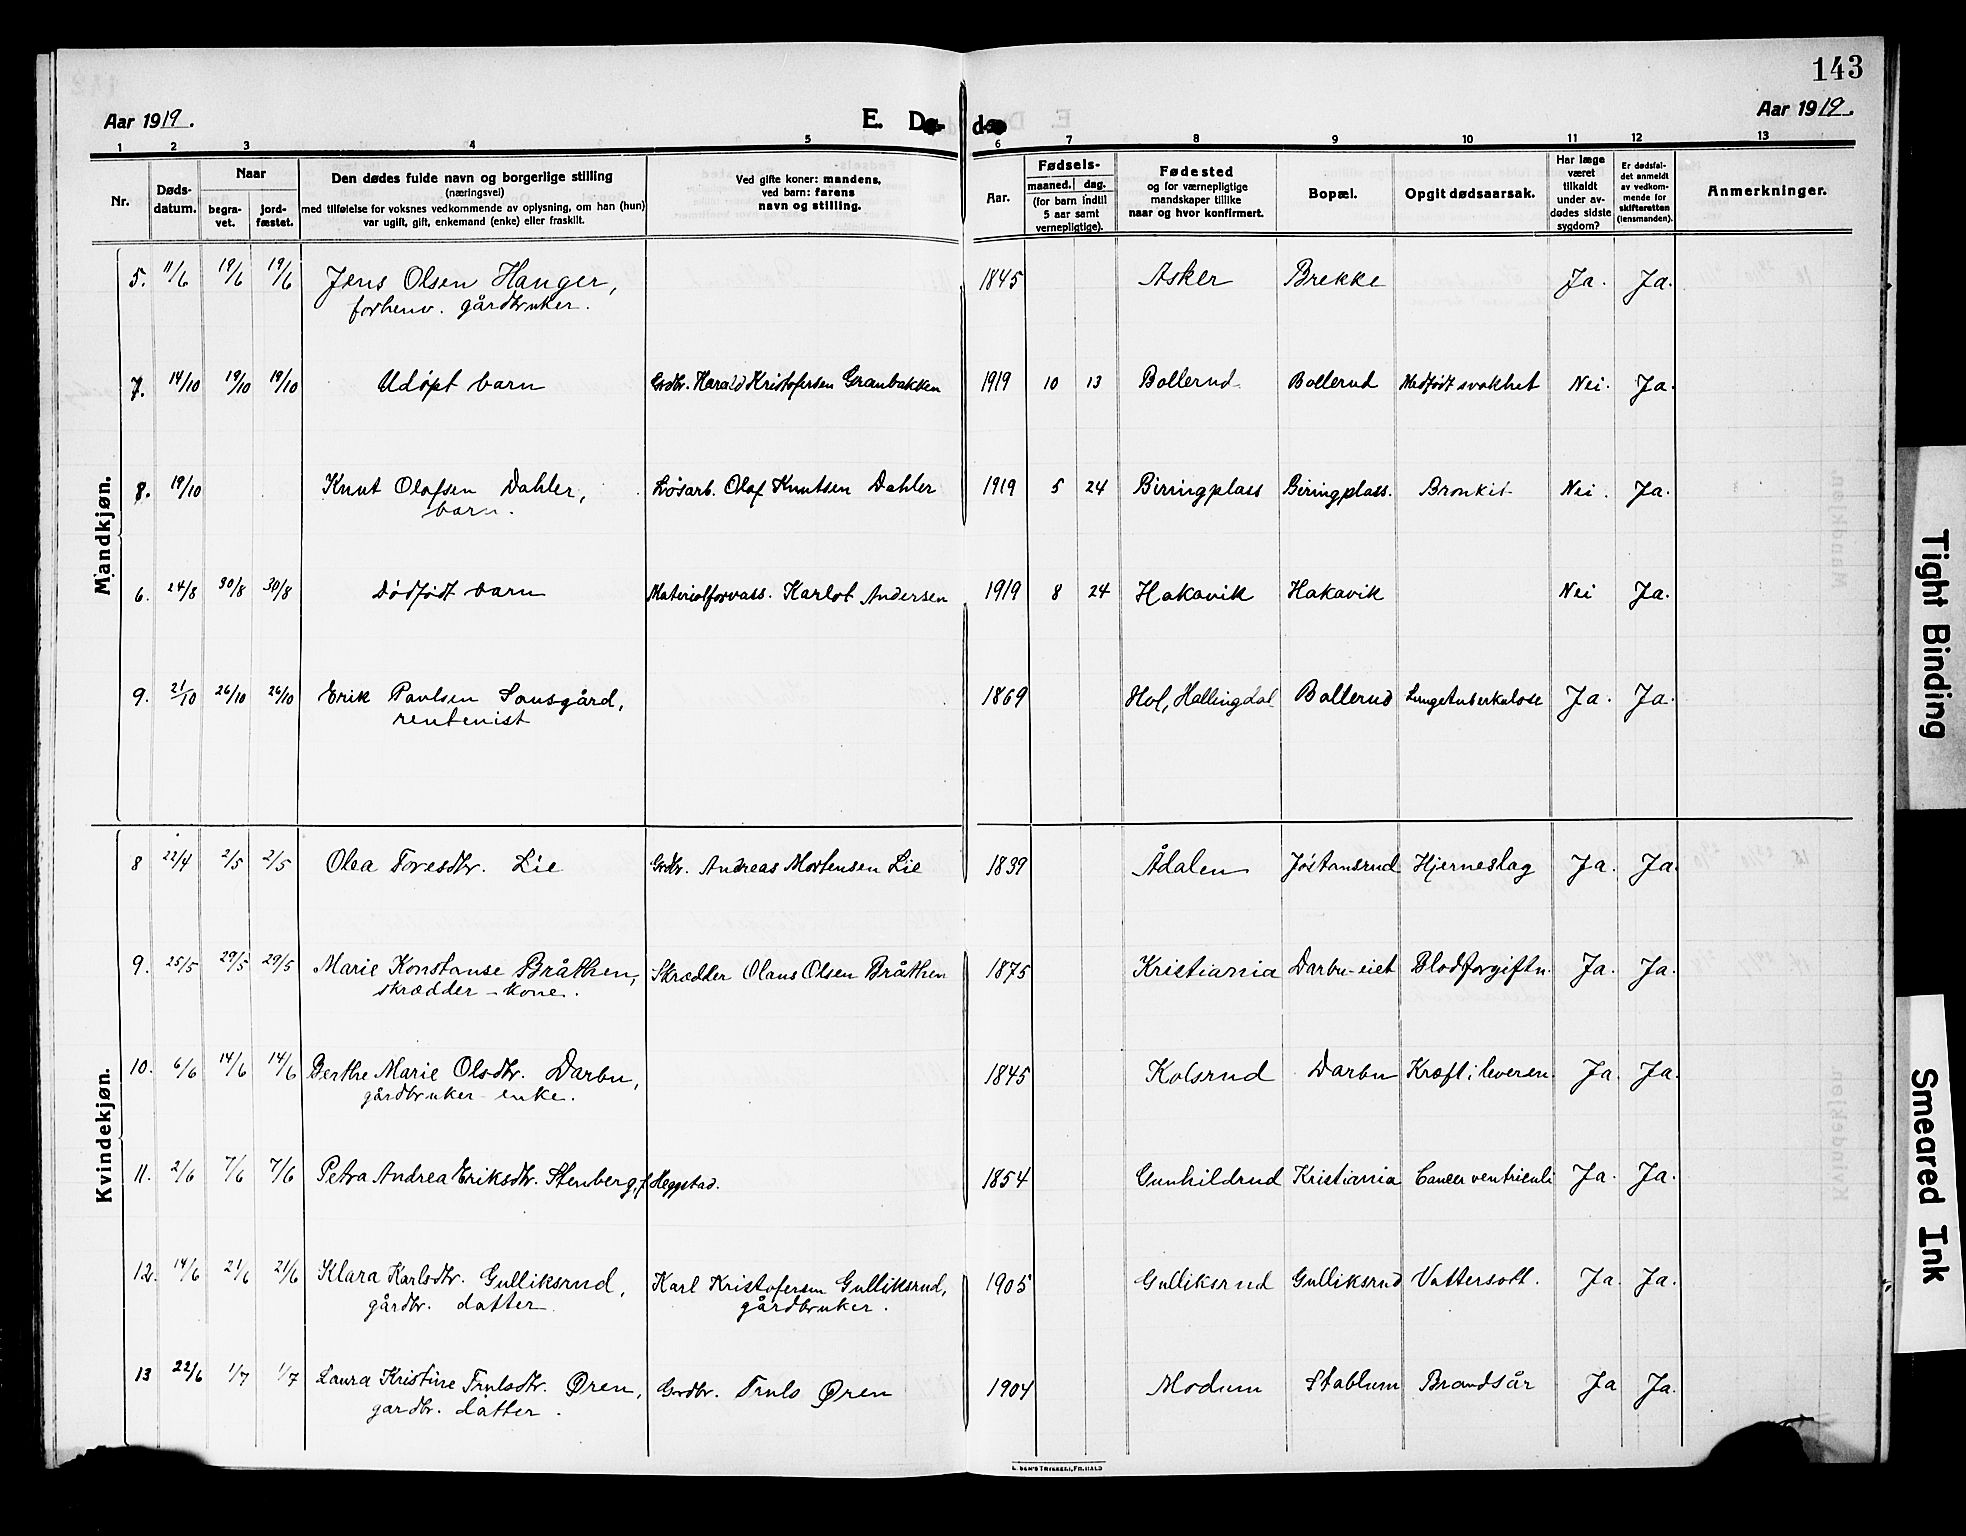 143
Aar 1919.
E. Døde
Aar 1919.
1 2 3 4 5 6 7 8 9 10 11 12 13
Nr.
Dødsdatum.
Naar
begravet.
jordfæstet.
Den dødes fulde navn og borgerlige stilling
(næringsvei)
med tilføielse for voksnes vedkommende av oplysning, om han (hun)
var ugift, gift, enkemand (enke) eller fraskilt.
Ved gifte koner: mandens,
ved barn: farens
navn og stilling.
Aar.
Fødsels-
maaned. dag.
(for barn indtil
5 aar samt
vernepligtige).
Fødested
og for værnepligtige
mandskaper tillike
naar og hvor konfirmert.
Bopæl.
Opgit dødsaarsak.
Har læge
været
tilkaldt
under av-
dødes sidste
sygdom?
Er dødsfal-
det anmeldt
av vedkom-
mende for
skifteretten
(lensmanden).
Anmerkninger.
Mandkjøn.
5. 11/6 19/6 19/6 Jens Olsen Hanger, 1845 Asker Brekke Ja. Ja.
forhenv. gårdbruker.
7. 14/10 19/10 19/10 Udøpt barn Grdbr. Harald Kristofersen Granbakken 1919 10 13 Bollerud Bollerud Medfødt svakhet Nei. Ja.
8. 19/10 Knut Olafsen Dahler, Løsarb. Olaf Knutsen Dahler 1919 5 24 Biringplass Biringplass. Bronkit Nei. Ja.
barn.
6. 24/8 30/8 30/8 Dødfødt barn Materialforvalt. Karlot Andersen 1919 8 24 Hakavik Hakavik Nei Ja.
9. 21/10 26/10 26/10 Erik Paulsen Sausgård, 1869 Hol, Hallingdal Bollerud Lungetuberkulose Ja. Ja.
rentenist
Kvindekjøn.
8 22/4 2/5 2/5 Olea Toresdtr. Lie Grdbr. Andreas Mortensen Lie 1839 Ådalen Jøstansrud Hjerneslag Ja. Ja.
9. 25/5 29/5 29/5 Marie Konstanse Bråthen, Skrædder Olaus Olsen Bråthen 1875 Kristiania Darbu-eiet Blodforgiftn. Ja. Ja.
skrædder-kone.
10. 6/6 14/6 14/6 Berthe Marie Olsdtr. Darbu, 1845 Kolsrud Darbu Kræft i leveren Ja. Ja.
gårdbruker-enke.
11. 2/6 7/6 7/6 Petra Andrea Eriksdtr. Stenberg, f. Heggstad. 1854 Gunhildrud Kristiania Cancer ventriculi Ja. Ja.
12. 14/6 21/6 21/6 Klara Karlsdtr. Gulliksrud, Karl Kristofersen Gulliksrud, 1905 Gulliksrud Gulliksrud Vattersott. Ja. Ja.
gårdbr. datter gårdbruker.
13 22/6 1/7 1/7 Laura Kristine Trulsdtr. Øren, Grdbr. Truls Øren 1904 Modum Stablum Brandsår Ja Ja.
gardbr. datter.
Tight Binding
Smeared Ink